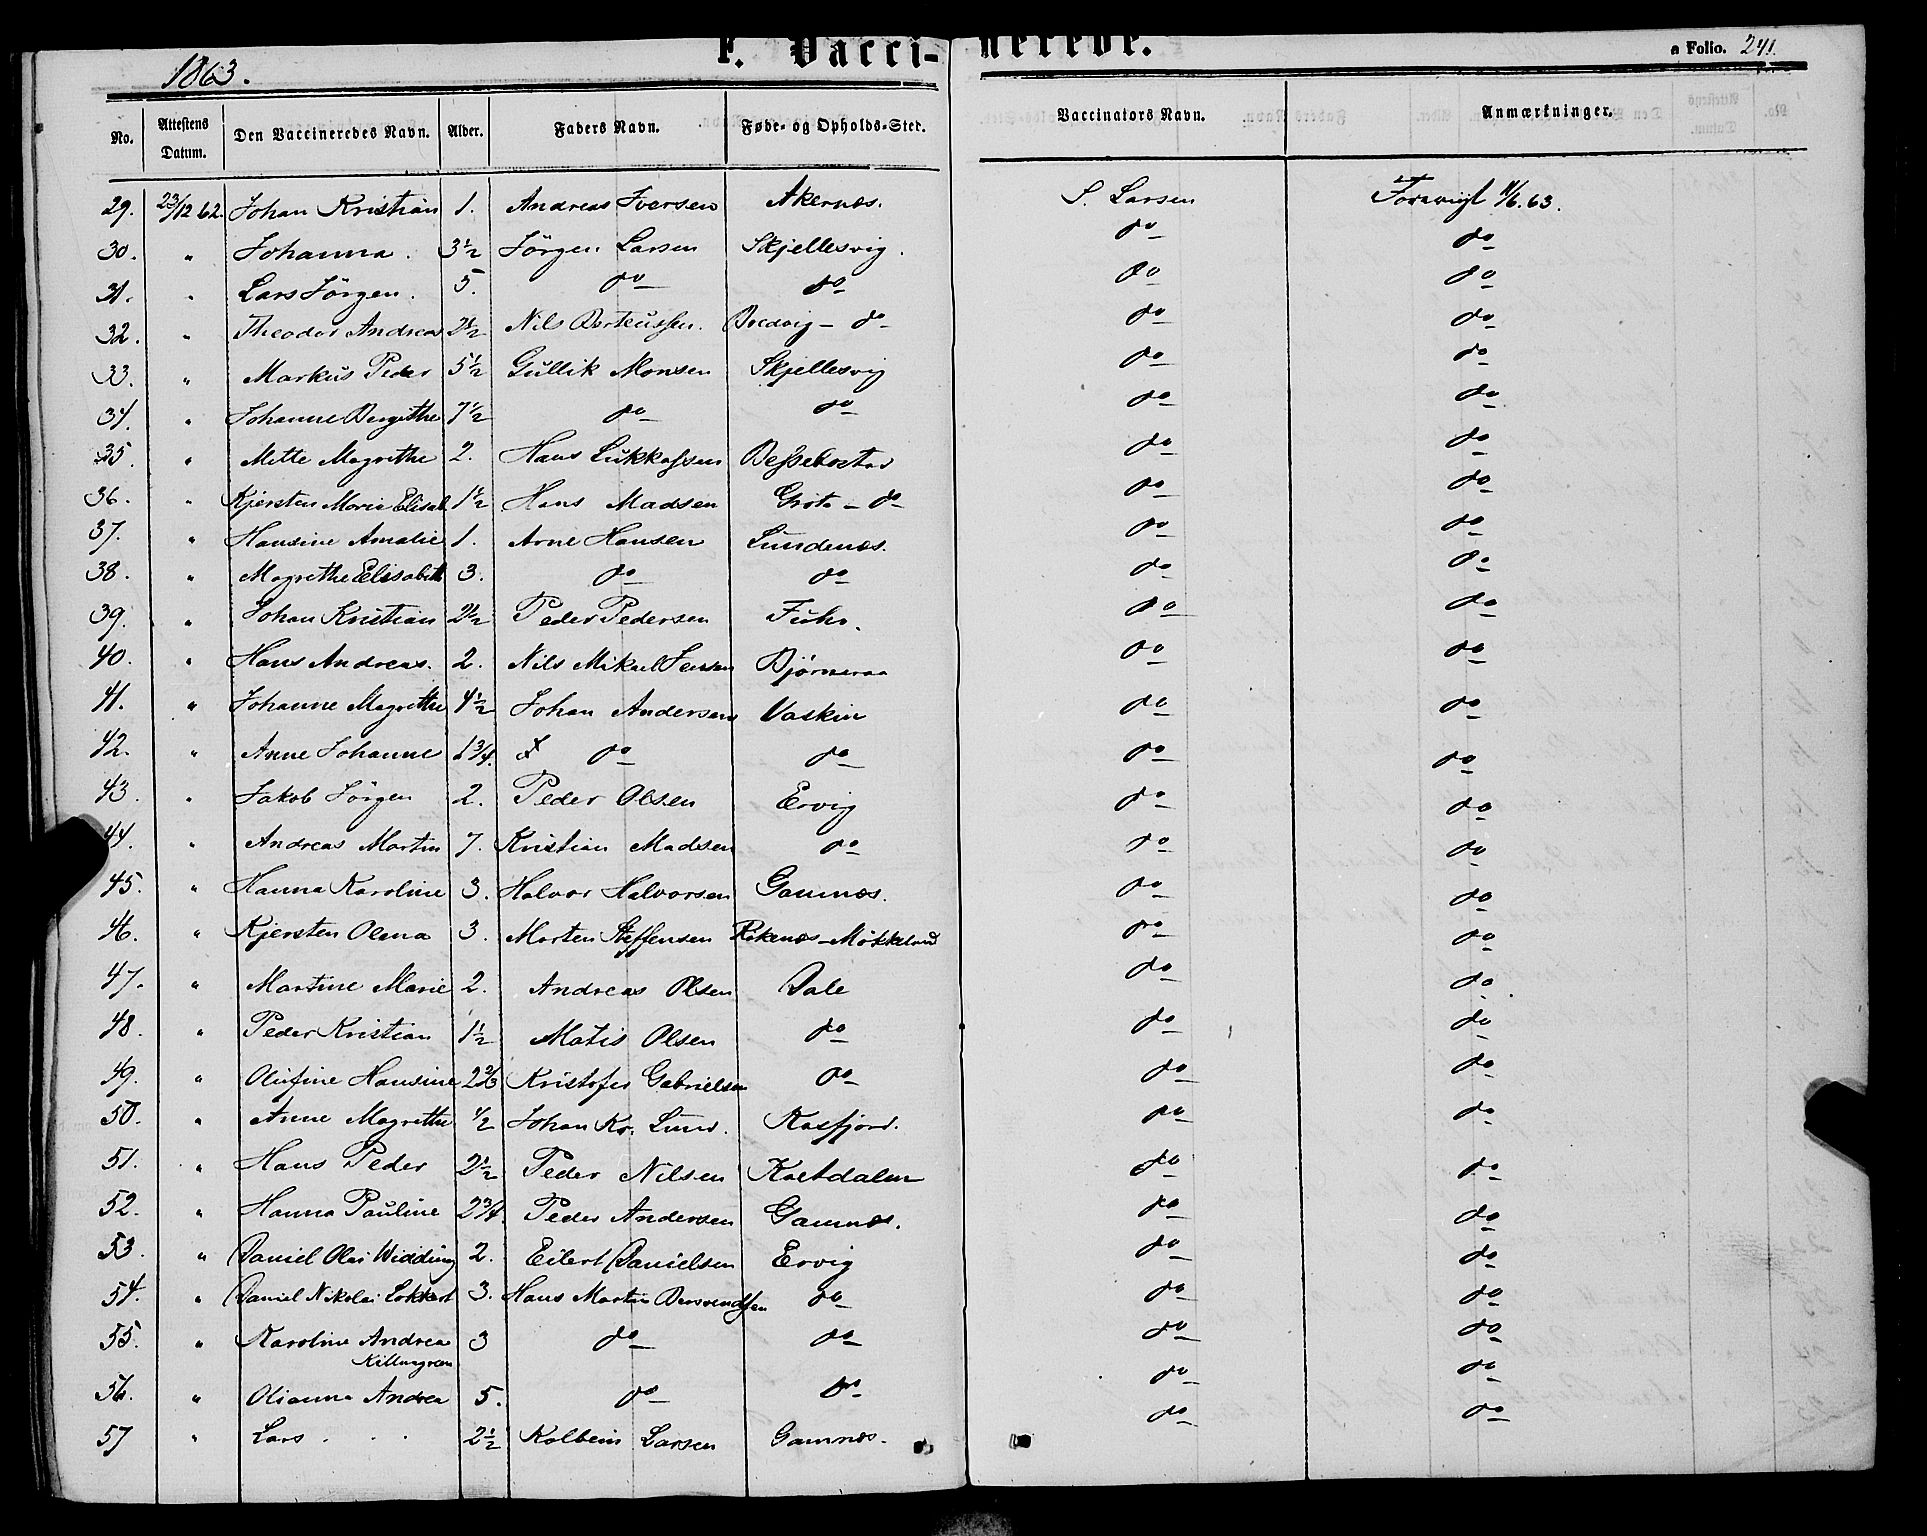 1863.
F. Vaccinerede.
a Folio. 241.
No. | Attestens Datum. | Den Vaccineredes Navn. | Alder. | Faders Navn. | Føde- og Opholds-Sted. | Vaccinators Navn. | Anmærkninger.
29. 23/12 62. Johan Kristian 1. Andreas Iversen Akernæs. S. Larsen Forevist 11/6.63.
30. " Johanna. 3½ Jörgen Larsen Skjellesvig. do do
31. " Lars Jörgen. 5. do do do do
32. " Theodor Andreas 2½ Nils Berteussen. Bredvig - do do do
33. " Markus Peder 5½ Gullik Monsen Skjellesvig do do
34. " Johanne Bergithe 7½ do do do do
35. " Mette Magrethe 2. Hans Lukkassen Bessebostad do do
36. " Kjersten Marie Elisab. 1½ Hans Madsen Grota - do do do
37. " Hansine Amalie 1. Arne Hansen Lundenæs. do do
38. " Magrethe Elisabeth 3. do do do do
39. " Johan Kristian 2½ Peder Pedersen do do
40. " Hans Andreas. 2. Nils Mikael Jensen Björneraa do do
41. " Johanne Magrethe 4½ Johan Andersen Vaskin do do
42. " Anne Johanne 1¾. do do do do
43. " Jakob Jörgen 2. Peder Olsen Ervig do do
44. " Andreas Martin 7. Kristian Madsen do do do
45. " Hanna Karoline 3. Halvor Halvorsen Gamnæs. do do
46. " Kjersten Olena 3. Morten Steffensen Rekenæs - Møkkeland do do
47. " Martine Marie 2. Andreas Olsen Dale do do
48. " Peder Kristian 1½ Matis Olsen do do do
49. " Olufine Hansine 2⅔ Kristofer Gabrielsen do do do
50. " Anne Magrethe ½ Johan Kr. Lund. Kasfjord. do do
51. " Hans Peder 2½ Peder Nilsen Kvetdalen do do
52. " Hanna Pauline 2¾. Peder Andersen Gamnæs. do do
53. " Daniel Olai Widding 2. Eilert Danielsen Ervig do do
54. " Daniel Nikolai Lokkert 3. Hans Martin Bersvendsen do do do
55. " Karoline Andrea 3 do do do do
Killengreen
56. " Olianna Andrea 5. do do do do
57 " Lars . . . 2½ Kolbein Larsen Gamnæs. do do